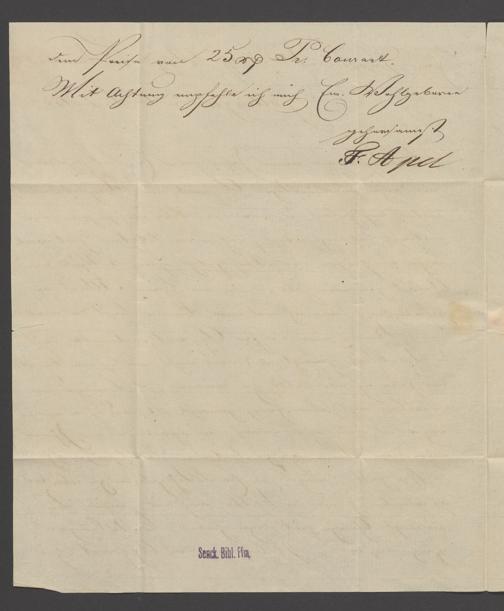 dem Preise von 25 rℓ Pr: Courant.
Mit Achtung empfehle ich mich Ew. Wohlgeboren
gehorsamst
F. Apel
Senck. Bibl. Ffm,